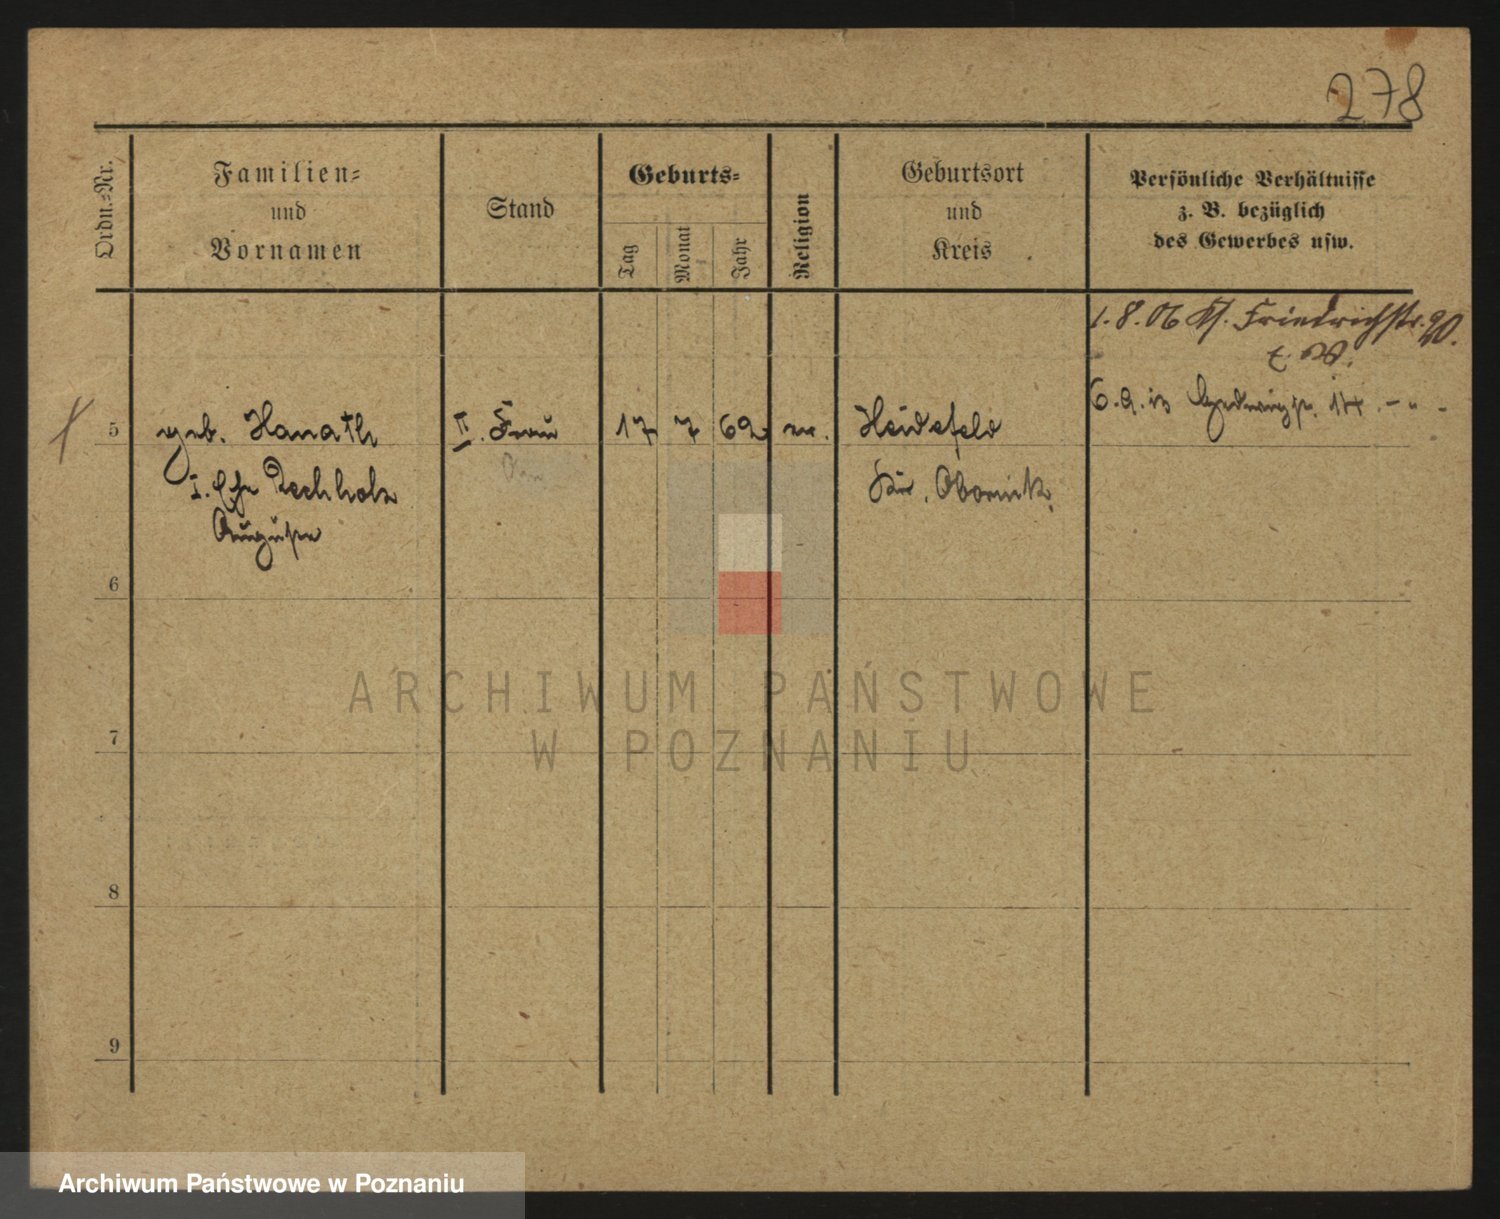 278
Ordn.-Nr.
Familien-
und
Vornamen
Stand
Geburts-
Tag
Monat
Jahr
Religion
Geburtsort
und
Kreis
Persönliche Verhältnisse
z. B. bezüglich
des Gewerbes usw.
1. 8. 06 Friedrichstr. 20.
5
geb. Hanath
II. Frau
17
7
62
Heidefeld
6. 9. 14.
I. Ehe Rechholz
Kr. Obornik
Auguste
6
7
8
9
ARCHIWUM PAŃSTWOWE
W POZNANIU
Archiwum Państwowe w Poznaniu